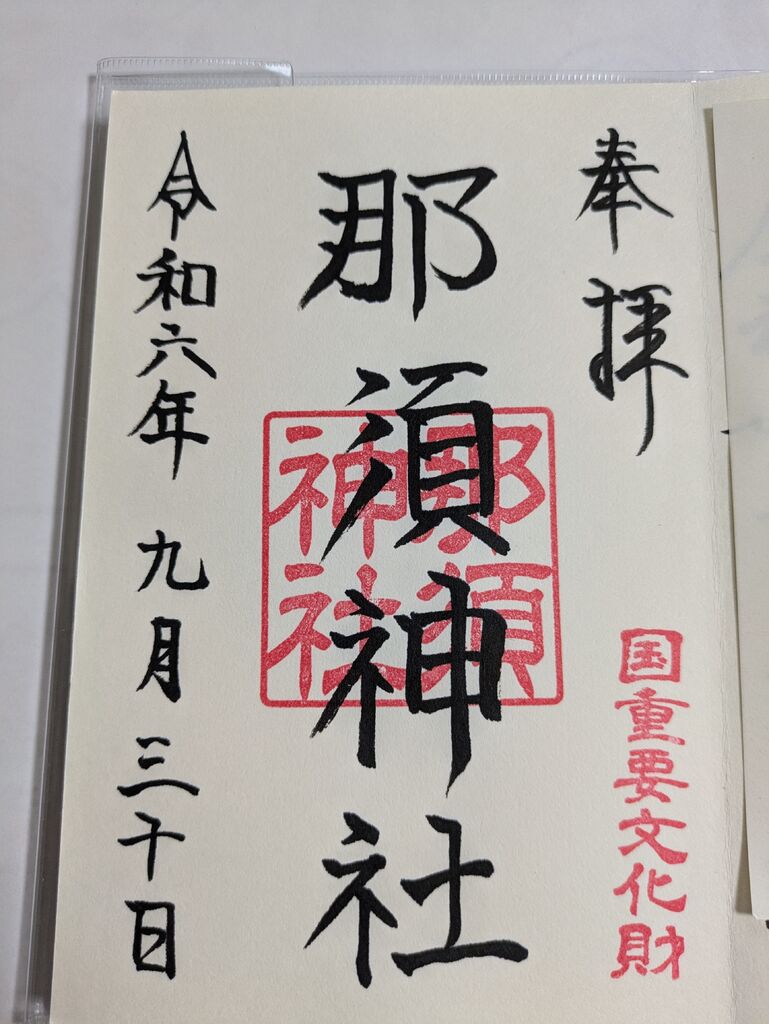 奉拝
国重要文化財
那須神社
那須神社
令和六年 九月 三十日